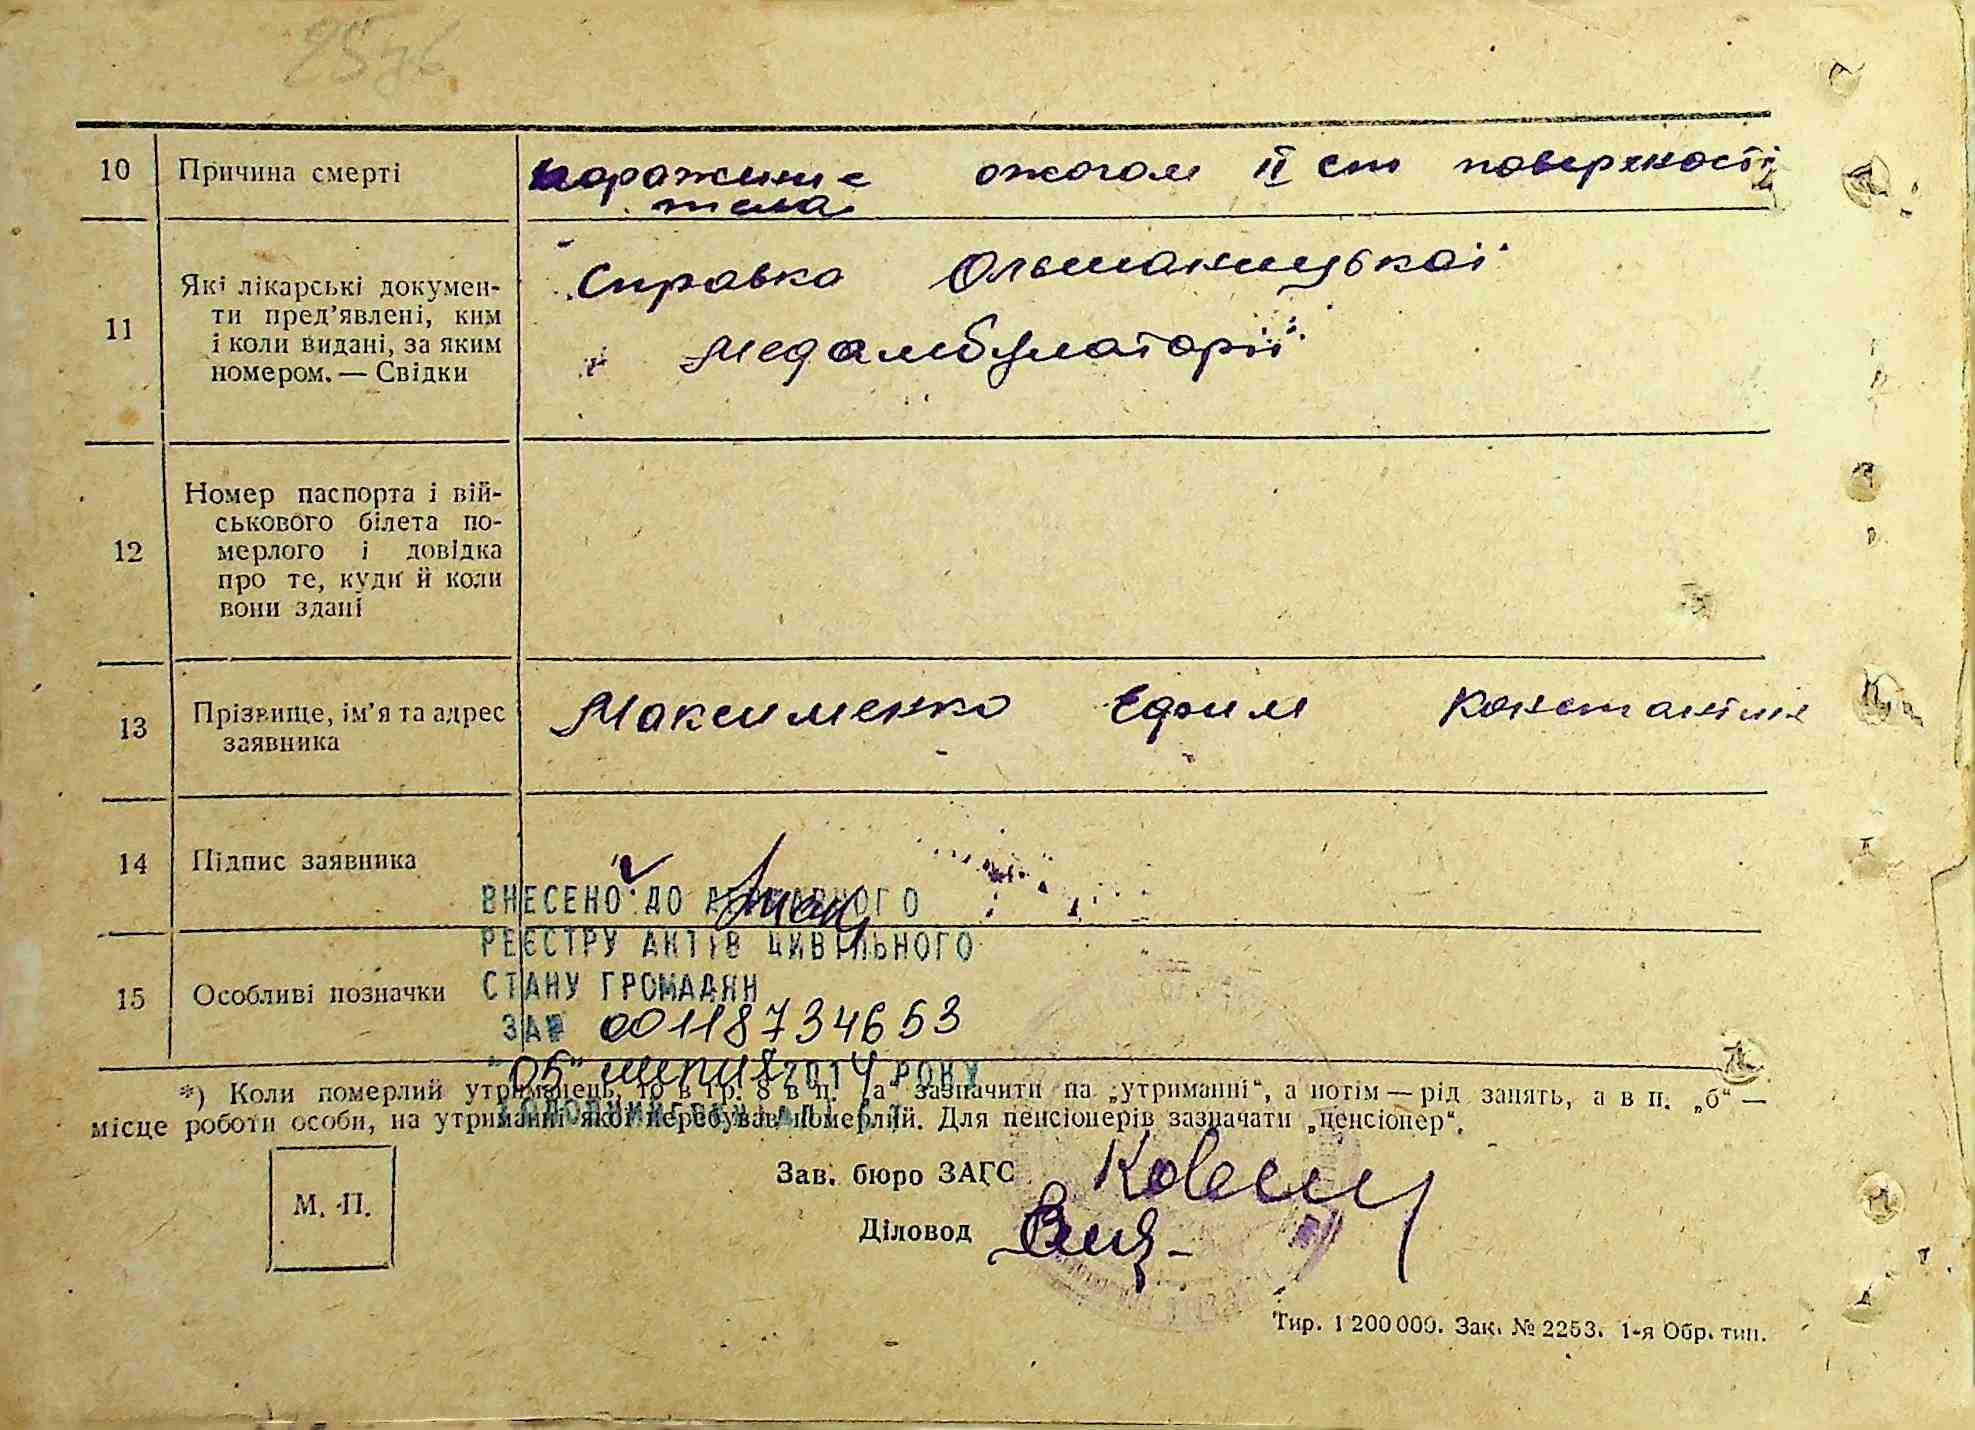 10 Причина смерті поражение ожогом ІІ ст поверхності
тела
11 Які лікарські документи пред'явлені, ким
і коли видані, за яким
номером. — Свідки
Справка Ольшаницькаї
медамбулаторії
12 Номер паспорта і вій-
ськового білета по-
мерлого і довідка
про те, куди й коли
вони здані
13 Прізвище, ім'я та адрес
заявника
Максименко Ефим Константин
14 Підпис заявника
15 Особливі позначки
ВНЕСЕНО ДО ДЕРЖАВНОГО
РЕЄСТРУ АКТІВ ЦИВІЛЬНОГО
СТАНУ ГРОМАДЯН
ЗА № 00118734653
"05" 2014 РОКУ
*) Коли померлий утриманець, то в гр. 8 в п. „а" зазначити на „утриманні", а потім — рід занять, а в п. „б" —
місце роботи особи, на утриманні якої перебував померлий. Для пенсіонерів зазначати „пенсіонер".
М. П.
Зав. бюро ЗАГС
Діловод
Тир. 1 200 000. Зак. № 2253. 1-я Обр. тип.